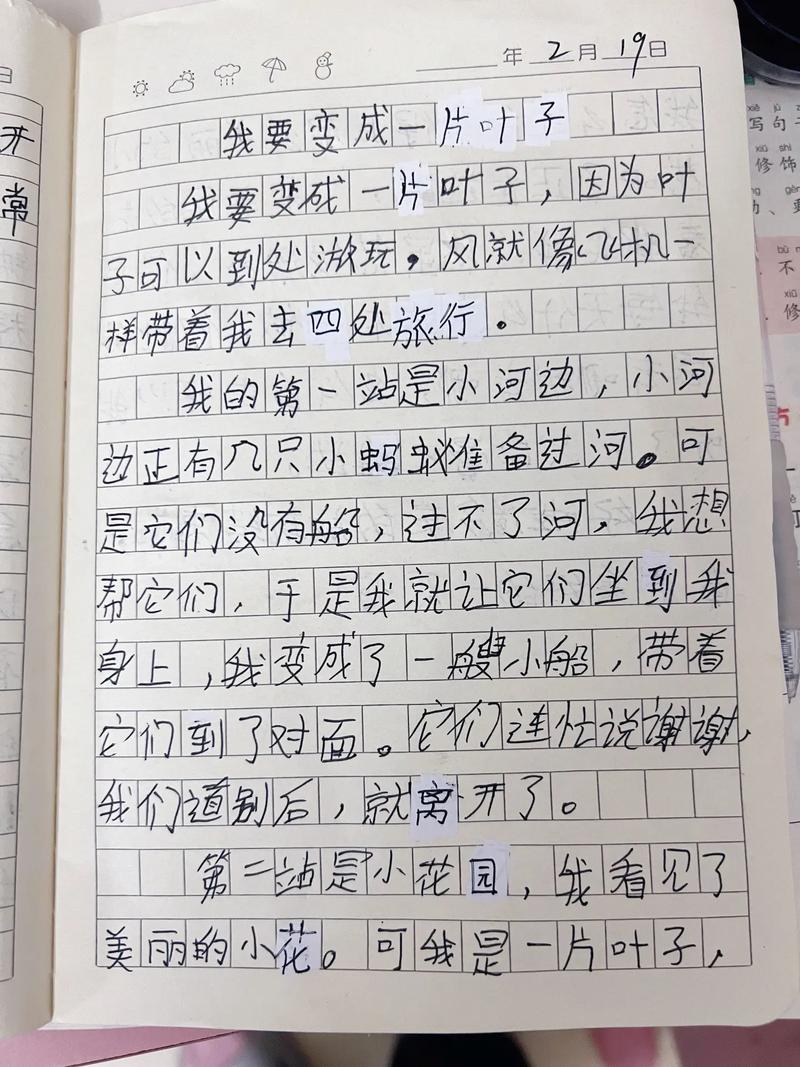 年2月19日
我要变成一片叶子
我要变成一片叶子，因为叶
子可以到处游玩。风就像飞机一
样带着我去四处旅行。
我的第一站是小河边，小河
边正有几只小蚂蚁准备过河。可
是它们没有船，过不了河，我想
帮它们，于是我就让它们坐到我
身上，我变成了一艘小船，带着
它们到了对面。它们连忙说谢谢，
我们道别后，就离开了。
第二站是小花园，我看见了
美丽的小花。可我是一片叶子，
日
开
常
xiě jù
写句子
xiū shì
修饰
bù
不
修